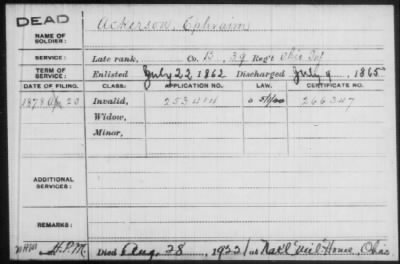 DEAD
NAME OF SOLDIER: Ackerson, Ephraim
SERVICE: Late rank, Co. B, 39 Reg't Ohio Inf
TERM OF SERVICE: Enlisted July 22 1862 Discharged July 9 1865
DATE OF FILING. CLASS. APPLICATION NO. LAW. CERTIFICATE NO.
1878 Apr 20 Invalid, 253414 266347
Widow,
Minor,
ADDITIONAL SERVICES:
REMARKS:
H.P.M. Died Aug. 28, 1922 at Nat'l Mil Home, Ohio